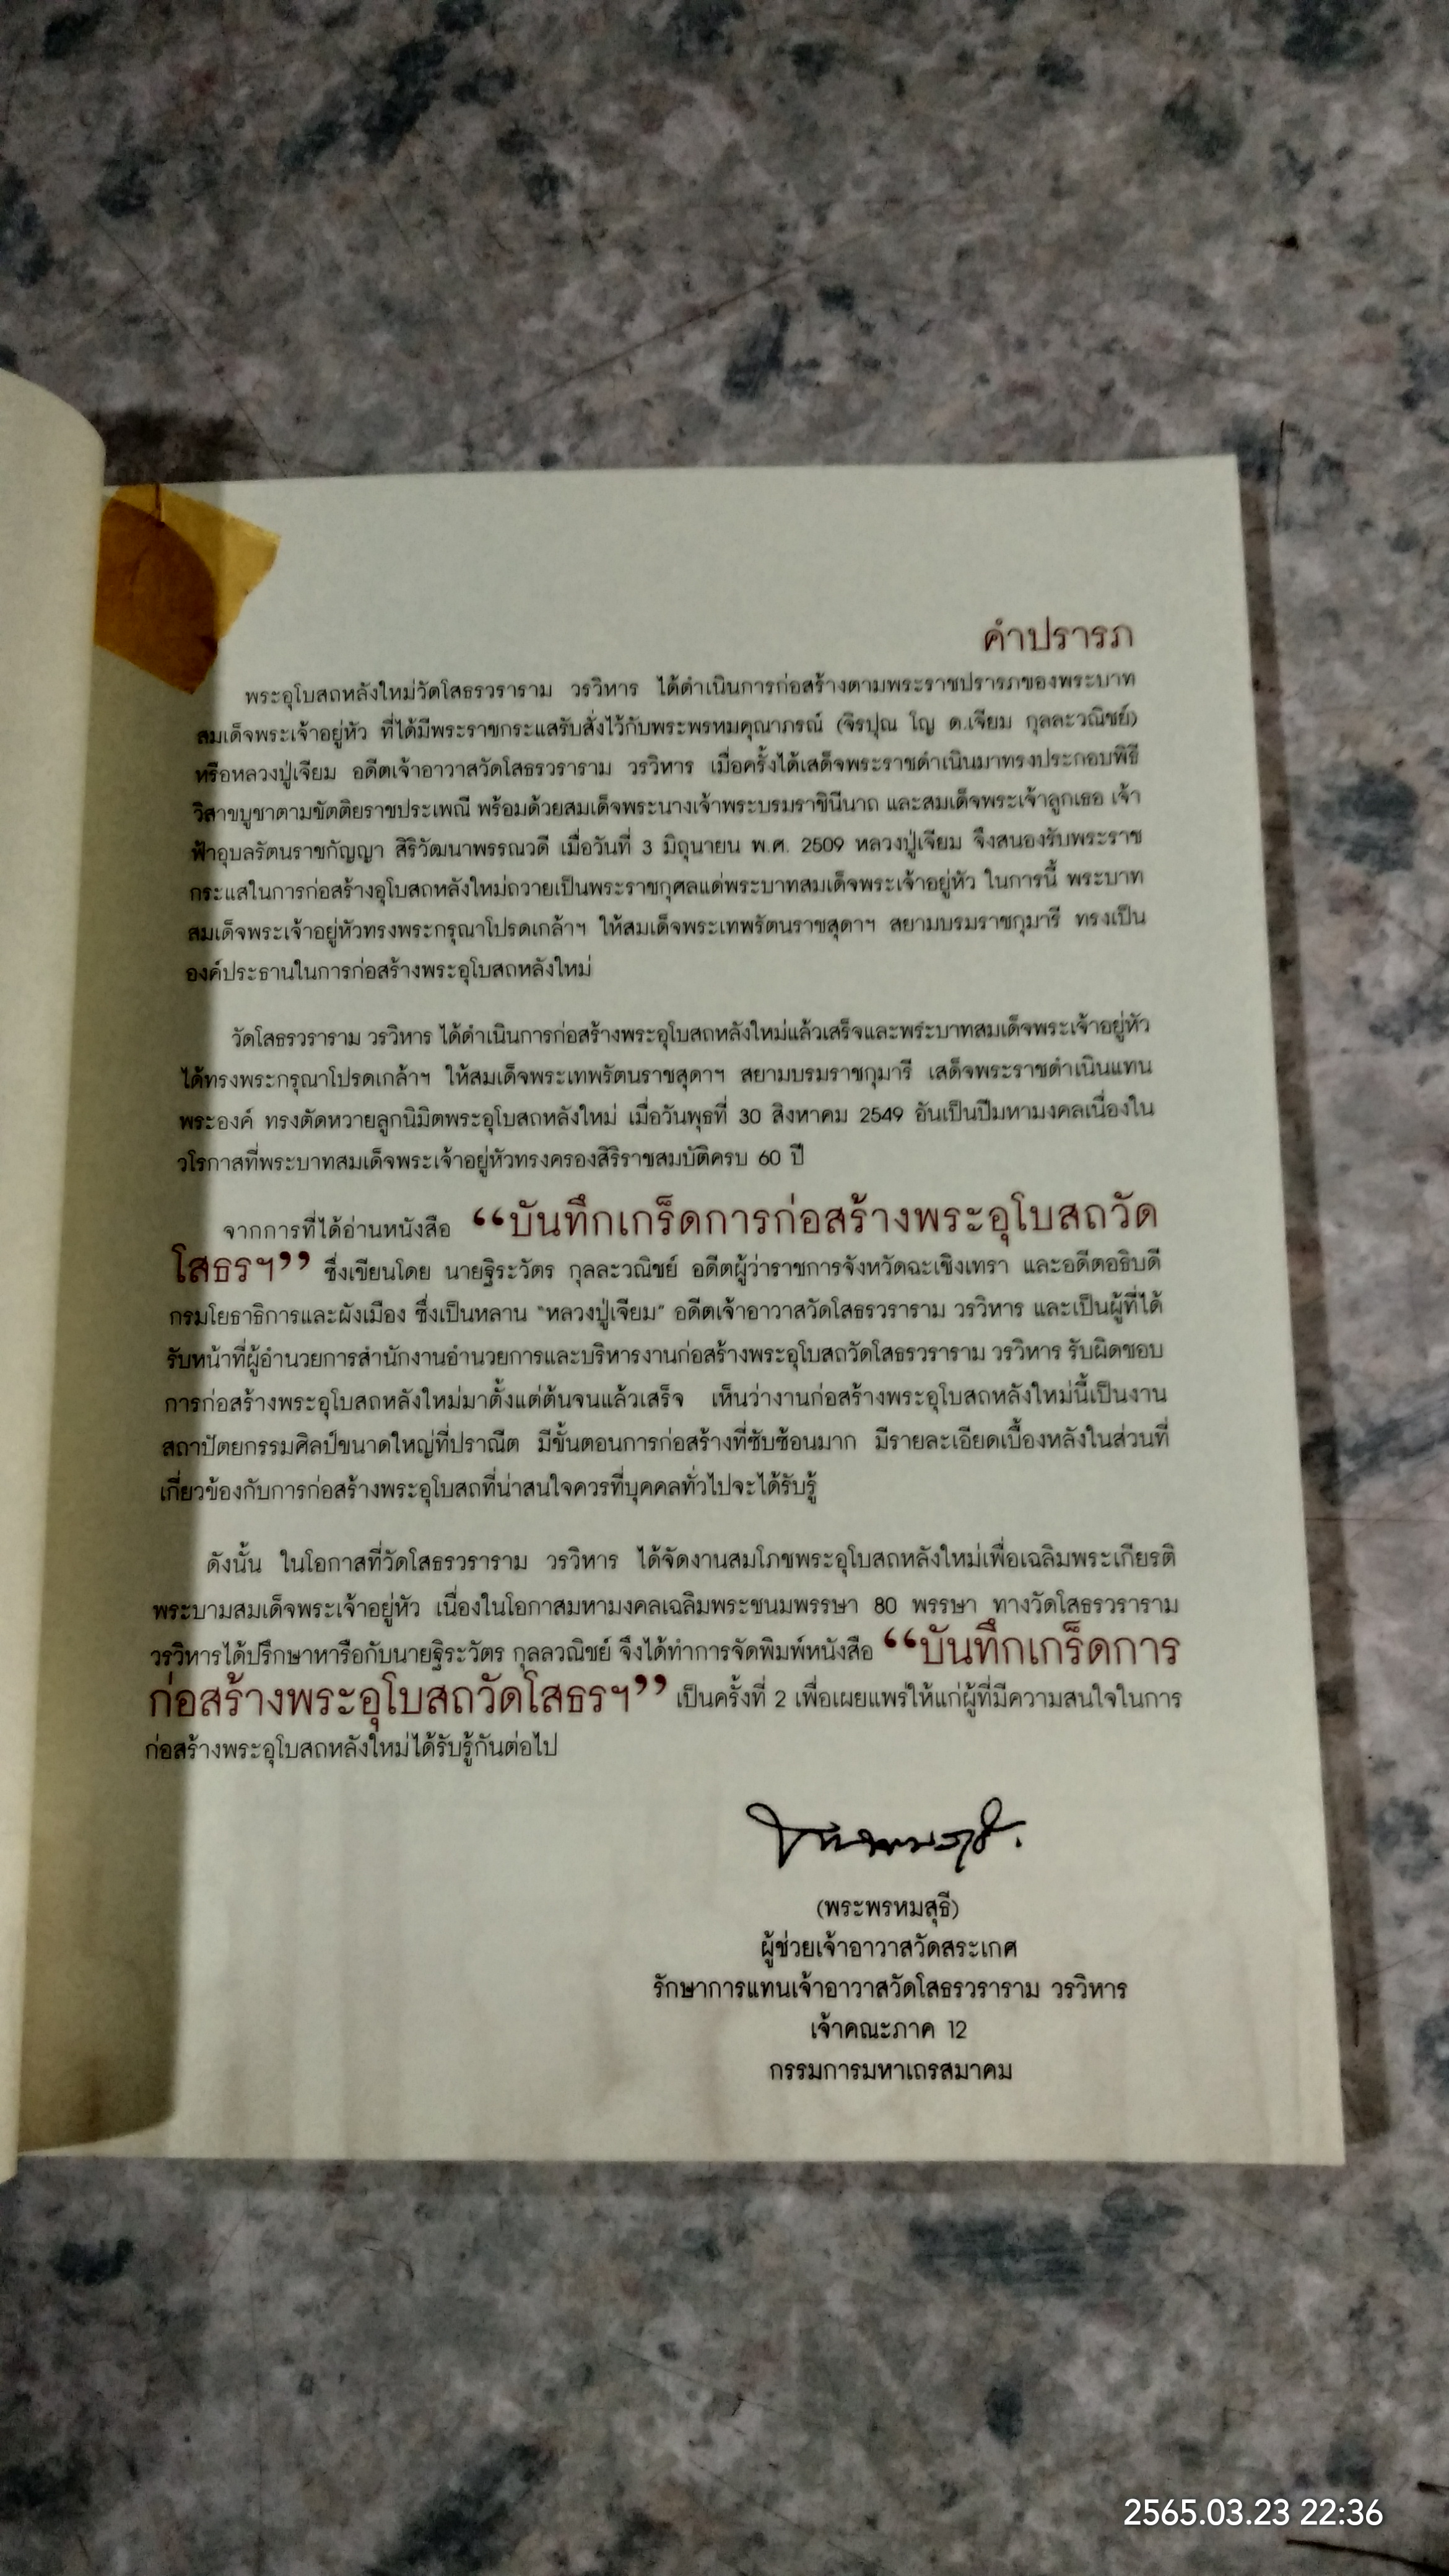 คำปรารภ
พระอุโบสถหลังใหม่วัดโสธรวราราม วรวิหาร ได้ดำเนินการก่อสร้างตามพระราชปรารภของพระบาท
สมเด็จพระเจ้าอยู่หัว ที่ได้มีพระราชกระแสรับสั่งไว้กับพระพรหมคุณาภรณ์ (จิรปุณ โญ ด.เจียม กุลละวณิชย์)
หรือหลวงปู่เจียม อดีตเจ้าอาวาสวัดโสธรวราราม วรวิหาร เมื่อครั้งได้เสด็จพระราชดำเนินมาทรงประกอบพิธี
วิสาขบูชาตามขัตติยราชประเพณี พร้อมด้วยสมเด็จพระนางเจ้าพระบรมราชินีนาถ และสมเด็จพระเจ้าลูกเธอ เจ้า
ฟ้าอุบลรัตนราชกัญญา สิริวัฒนาพรรณวดี เมื่อวันที่ 3 มิถุนายน พ.ศ. 2509 หลวงปู่เจียม จึงสนองรับพระราช
กระแสในการก่อสร้างอุโบสถหลังใหม่ถวายเป็นพระราชกุศลแด่พระบาทสมเด็จพระเจ้าอยู่หัว ในการนี้ พระบาท
สมเด็จพระเจ้าอยู่หัวทรงพระกรุณาโปรดเกล้าฯ ให้สมเด็จพระเทพรัตนราชสุดาฯ สยามบรมราชกุมารี ทรงเป็น
องค์ประธานในการก่อสร้างพระอุโบสถหลังใหม่
วัดโสธรวราราม วรวิหาร ได้ดำเนินการก่อสร้างพระอุโบสถหลังใหม่แล้วเสร็จและพระบาทสมเด็จพระเจ้าอยู่หัว
ได้ทรงพระกรุณาโปรดเกล้าฯ ให้สมเด็จพระเทพรัตนราชสุดาฯ สยามบรมราชกุมารี เสด็จพระราชดำเนินแทน
พระองค์ ทรงตัดหวายลูกนิมิตพระอุโบสถหลังใหม่ เมื่อวันพุธที่ 30 สิงหาคม 2549 อันเป็นปีมหามงคลเนื่องใน
วโรกาสที่พระบาทสมเด็จพระเจ้าอยู่หัวทรงครองสิริราชสมบัติครบ 60 ปี
จากการที่ได้อ่านหนังสือ “บันทึกเกร็ดการก่อสร้างพระอุโบสถวัด
โสธรฯ” ซึ่งเขียนโดย นายฐิระวัตร กุลละวณิชย์ อดีตผู้ว่าราชการจังหวัดฉะเชิงเทรา และอดีตอธิบดี
กรมโยธาธิการและผังเมือง ซึ่งเป็นหลาน "หลวงปู่เจียม" อดีตเจ้าอาวาสวัดโสธรวราราม วรวิหาร และเป็นผู้ที่ได้
รับหน้าที่ผู้อำนวยการสำนักงานอำนวยการและบริหารงานก่อสร้างพระอุโบสถวัดโสธรวราราม วรวิหาร รับผิดชอบ
การก่อสร้างพระอุโบสถหลังใหม่มาตั้งแต่ต้นจนแล้วเสร็จ เห็นว่างานก่อสร้างพระอุโบสถหลังใหม่นี้เป็นงาน
สถาปัตยกรรมศิลป์ขนาดใหญ่ที่ปราณีต มีขั้นตอนการก่อสร้างที่ซับซ้อนมาก มีรายละเอียดเบื้องหลังในส่วนที่
เกี่ยวข้องกับการก่อสร้างพระอุโบสถที่น่าสนใจควรที่บุคคลทั่วไปจะได้รับรู้
ดังนั้น ในโอกาสที่วัดโสธรวราราม วรวิหาร ได้จัดงานสมโภชพระอุโบสถหลังใหม่เพื่อเฉลิมพระเกียรติ
พระบามสมเด็จพระเจ้าอยู่หัว เนื่องในโอกาสมหามงคลเฉลิมพระชนมพรรษา 80 พรรษา ทางวัดโสธรวราราม
วรวิหารได้ปรึกษาหารือกับนายฐิระวัตร กุลลวณิชย์ จึงได้ทำการจัดพิมพ์หนังสือ “บันทึกเกร็ดการ
ก่อสร้างพระอุโบสถวัดโสธรฯ” เป็นครั้งที่ 2 เพื่อเผยแพร่ให้แก่ผู้ที่มีความสนใจในการ
ก่อสร้างพระอุโบสถหลังใหม่ได้รับรู้กันต่อไป
(พระพรหมสุธี)
ผู้ช่วยเจ้าอาวาสวัดสระเกศ
รักษาการแทนเจ้าอาวาสวัดโสธรวราราม วรวิหาร
เจ้าคณะภาค 12
กรรมการมหาเถรสมาคม
2565.03.23 22:36